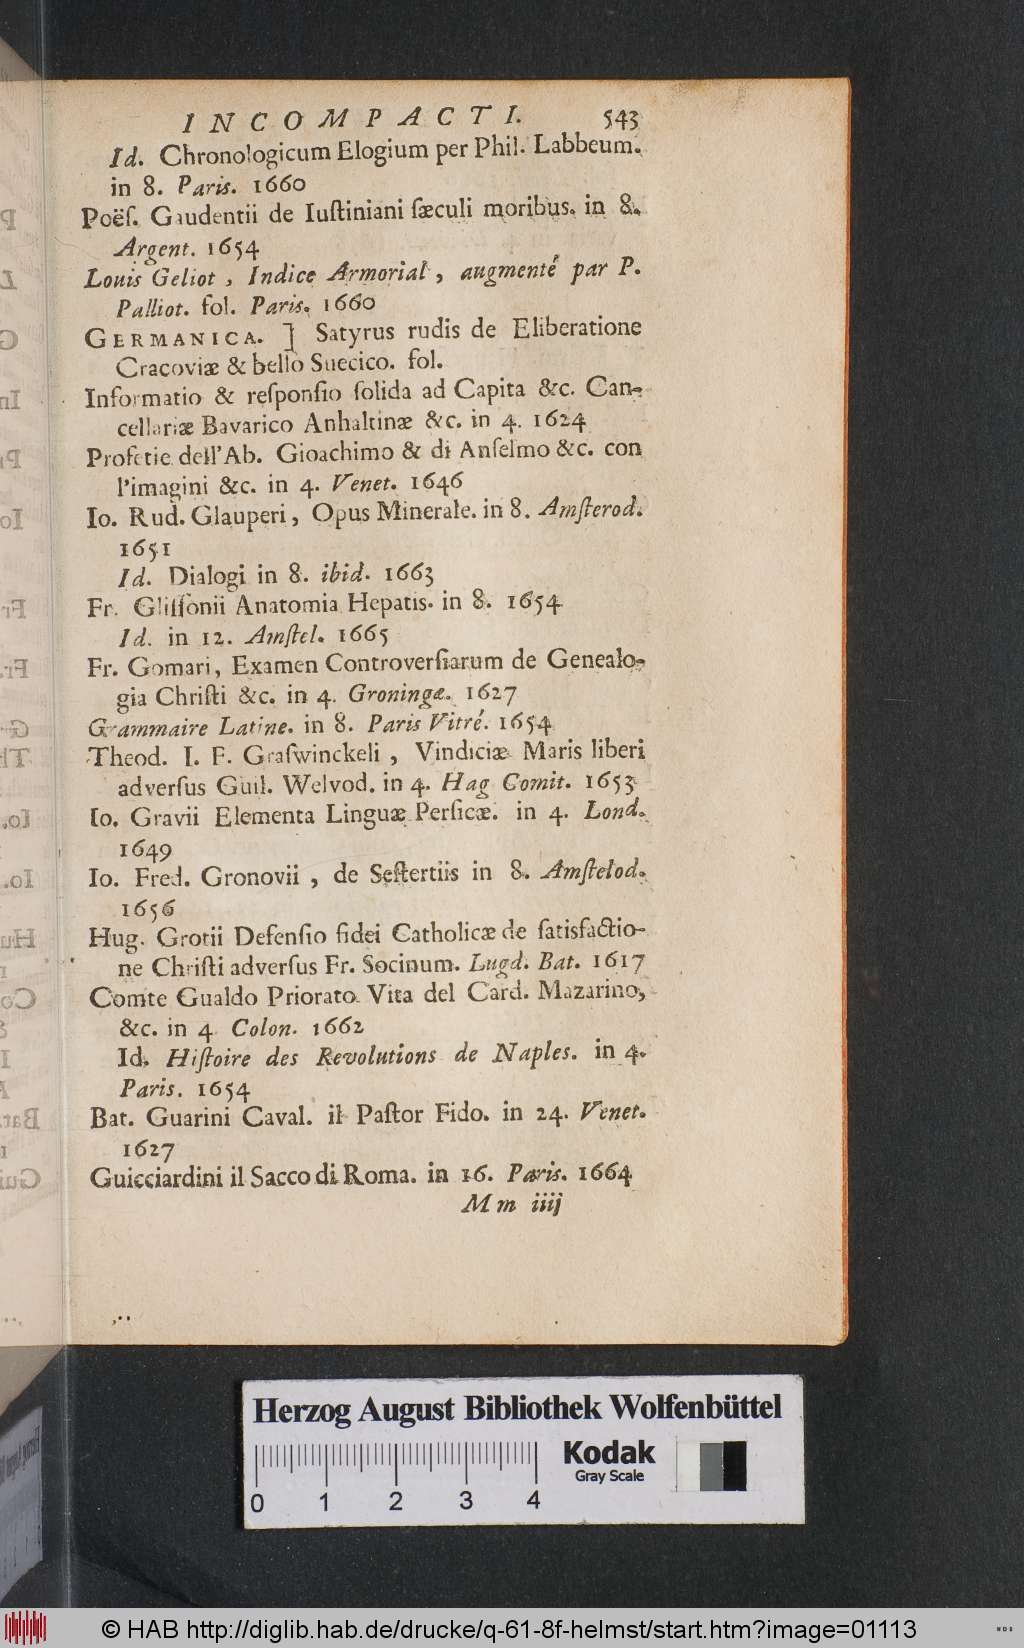 INCOMPACTI. 543
Id. Chronologicum Elogium per Phil. Labbeum.
in 8. Paris. 1660
Poëſ. Gaudentii de Iuſtiniani ſæculi moribus. in 8.
Argent. 1654
Louis Geliot, Indice Armorial, augmenté par P.
Palliot. fol. Paris. 1660
GERMANICA. ] Satyrus rudis de Eliberatione
Cracoviæ & bello Suecico. fol.
Informatio & reſponſio ſolida ad Capita &c. Can-
cellariæ Bavarico Anhaltinæ &c. in 4. 1624
Profetie dell'Ab. Gioachimo & di Anſelmo &c. con
l'imagini &c. in 4. Venet. 1646
Io. Rud. Glauperi, Opus Minerale. in 8. Amſterod.
1651
Id. Dialogi in 8. ibid. 1663
Fr. Gliſſonii Anatomia Hepatis. in 8. 1654
Id. in 12. Amſtel. 1665
Fr. Gomari, Examen Controverſiarum de Genealo-
gia Chriſti &c. in 4. Groningæ. 1627
Grammaire Latine. in 8. Paris Vitré. 1654
Theod. I. F. Graſwinckeli, Vindiciæ Maris liberi
adverſus Guil. Welvod. in 4. Hag Comit. 1653
Io. Gravii Elementa Linguæ Perſicæ. in 4. Lond.
1649
Io. Fred. Gronovii, de Seſtertiis in 8. Amſtelod.
1656
Hug. Grotii Defenſio fidei Catholicæ de ſatisfactio-
ne Chriſti adverſus Fr. Socinum. Lugd. Bat. 1617
Comte Gualdo Priorato Vita del Card. Mazarino,
&c. in 4 Colon. 1662
Id. Hiſtoire des Revolutions de Naples. in 4.
Paris. 1654
Bat. Guarini Caval. il Paſtor Fido. in 24. Venet.
1627
Guicciardini il Sacco di Roma. in 16. Paris. 1664
Mm iiij
Herzog August Bibliothek Wolfenbüttel
Kodak
Gray Scale
0 1 2 3 4
© HAB http://diglib.hab.de/drucke/q-61-8f-helmst/start.htm?image=01113